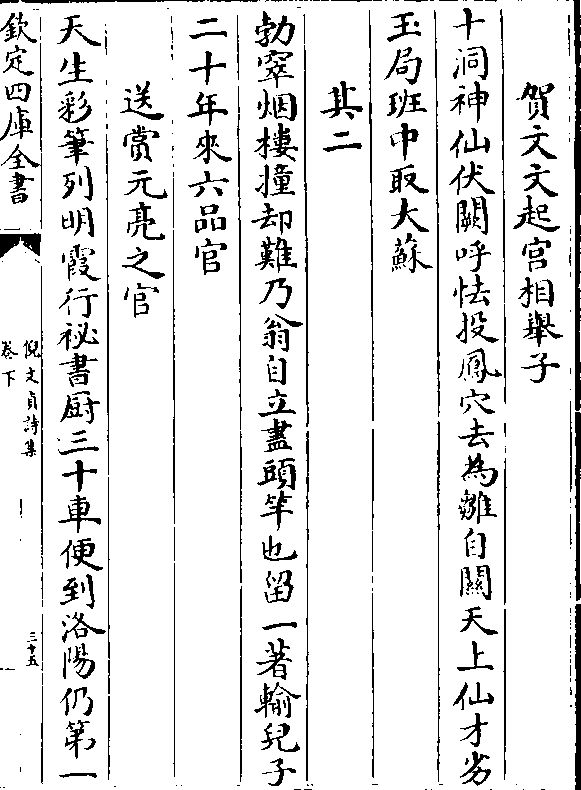 賀文文起宫相舉子
十洞神仙伏闕呼怯投鳳穴去為雛自關天上仙才劣
玉局班中取大蘇
其二
勃窣烟樓撞却難乃翁自立盡頭竿也留一著輸兒子
二十年來六品官
送賞元亮之官
天生彩筆列明霞行祕書厨三十車便到洛陽仍第一
欽定四庫全書
倪文貞詩集
卷下
三十五